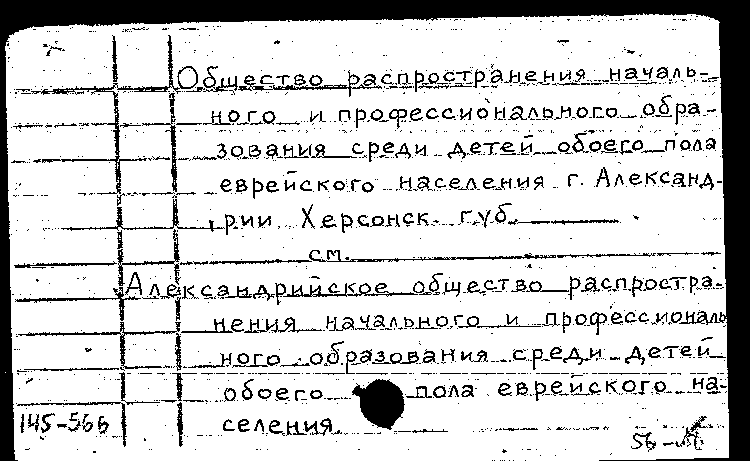 Общество распространения началь-
ного и профессионального обра-
зования среди детей обоего пола
еврейского населения г. Александ-
рии Херсонск. губ.
см.
Александрийское общество распростра-
нения начального и профессиональ
ного образования среди детей
обоего пола еврейского на-
селения.
145-56б